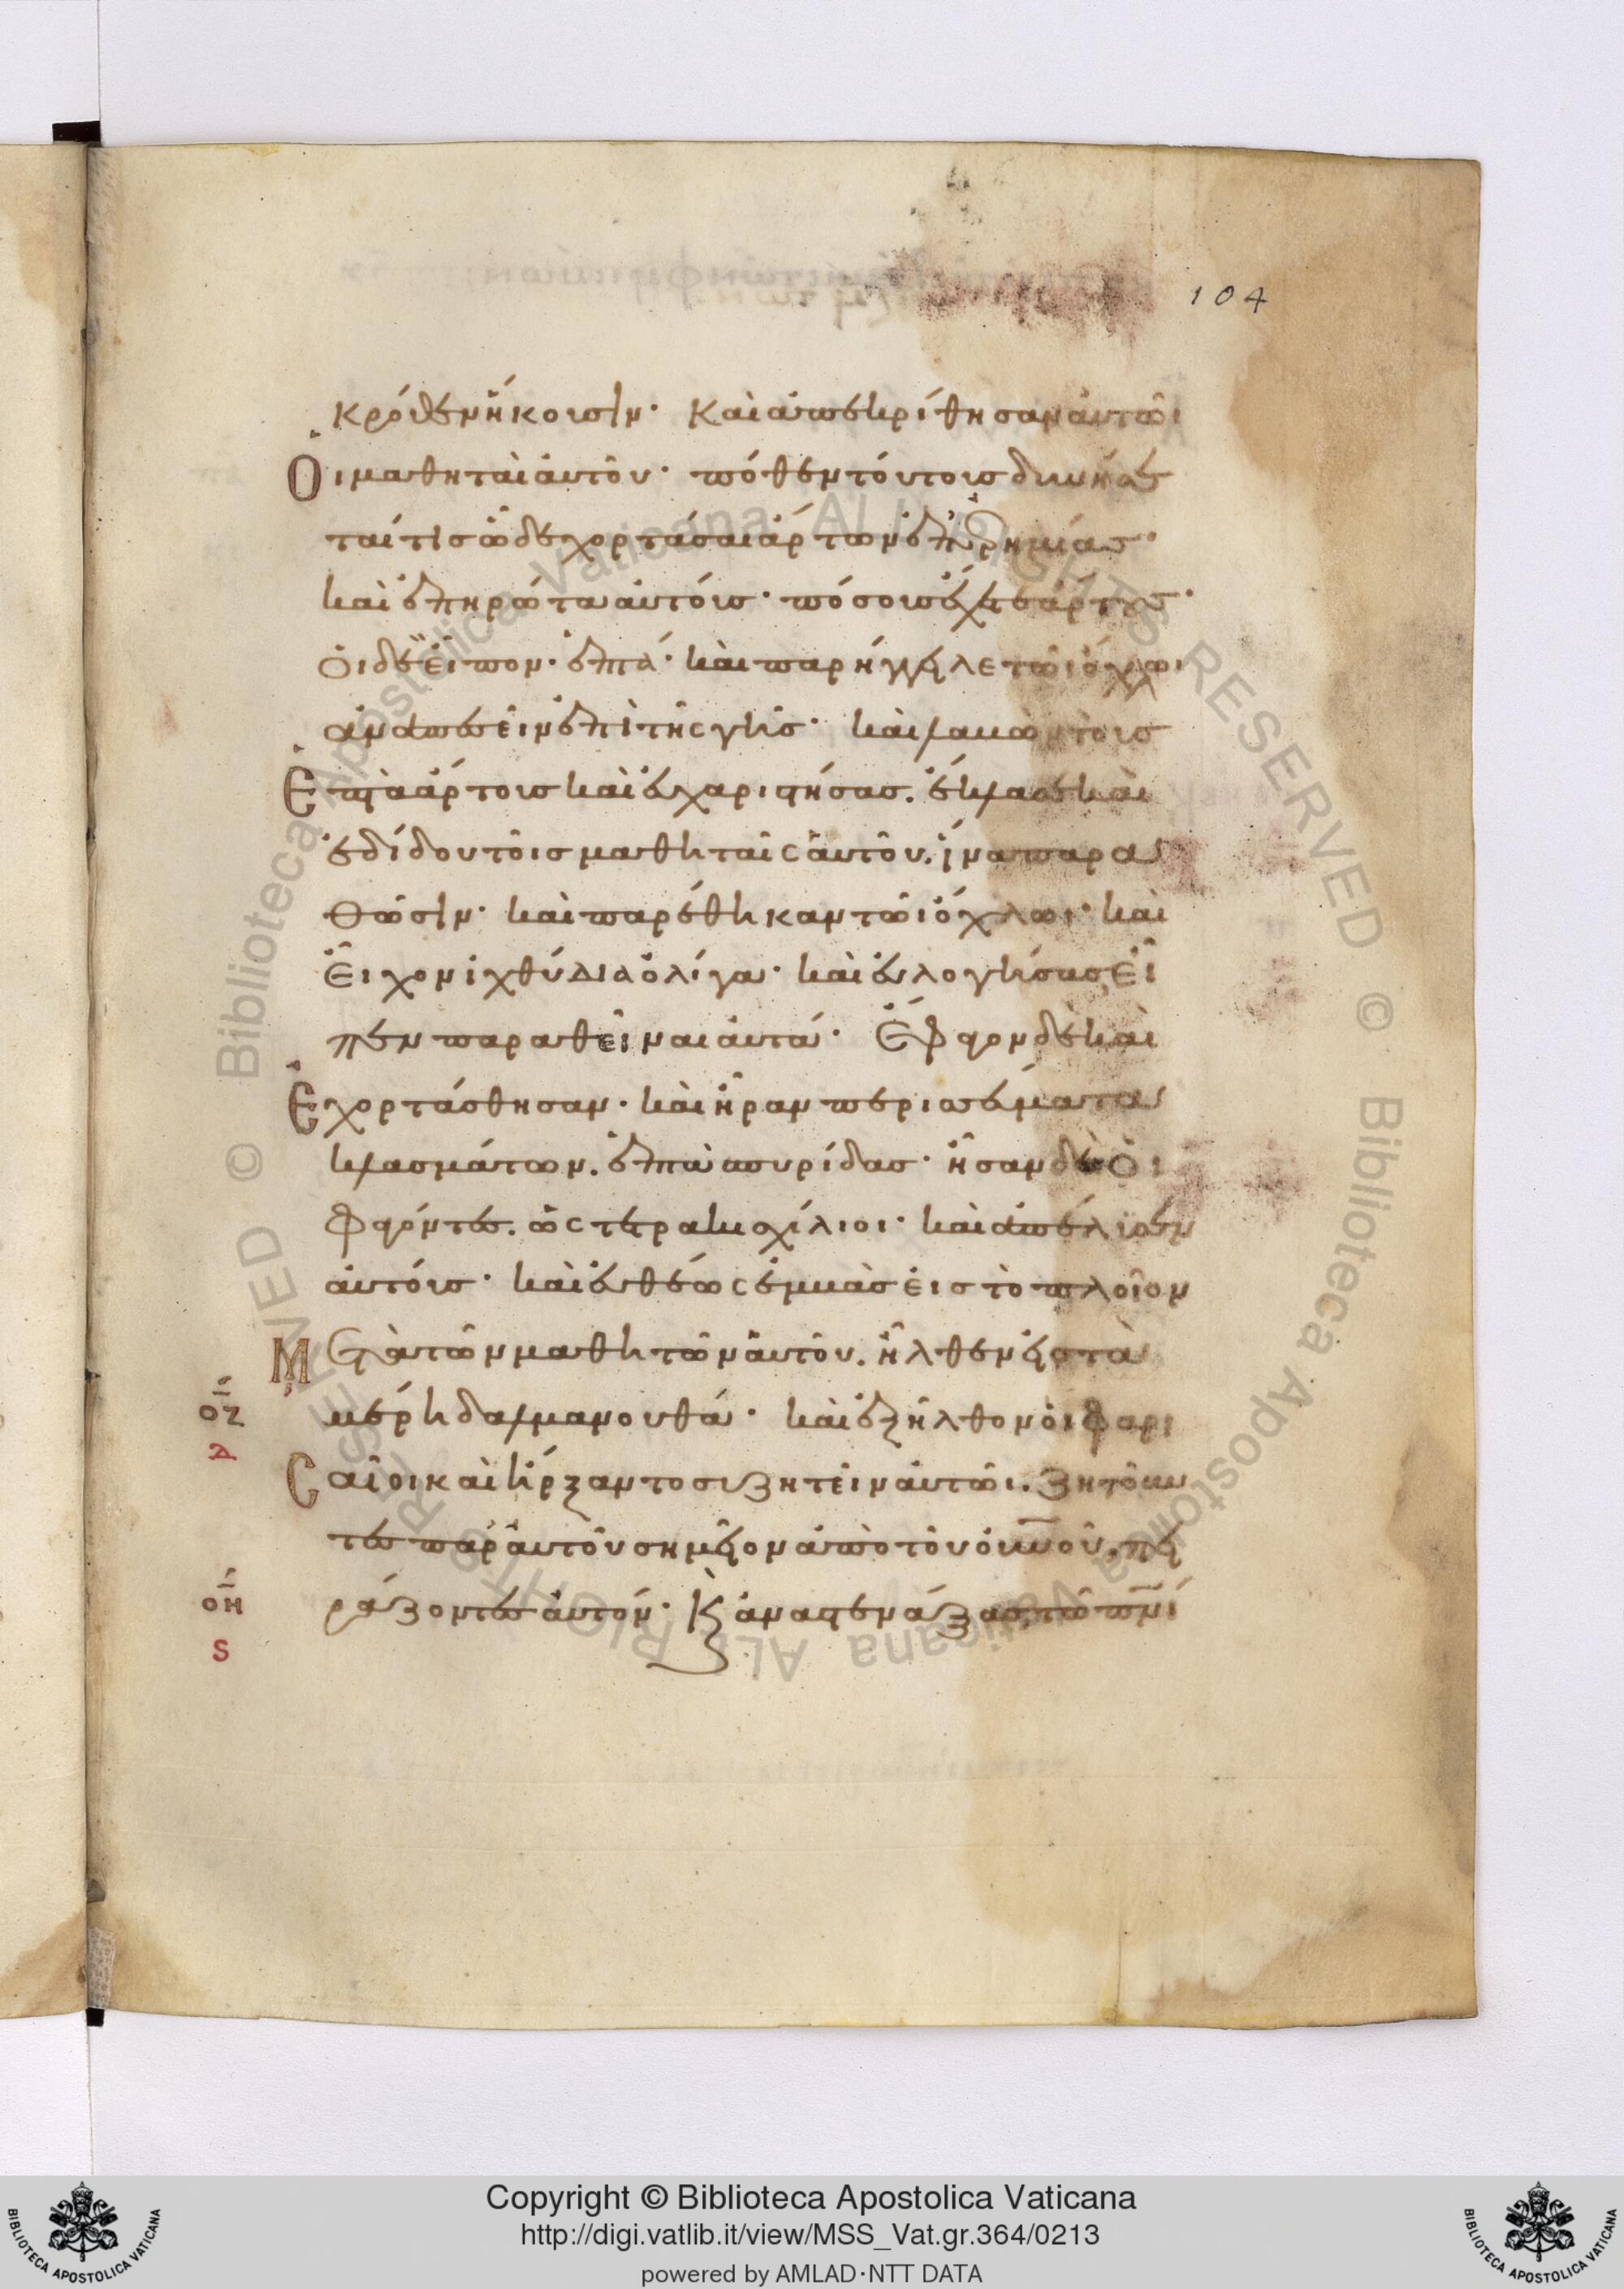 104
κρόθεν ἥκουσιν· Καὶ ἀπεκρίθησαν αὐτῶι
Οἱ μαθηταὶ αὐτοῦ· πόθεν τούτους δυνήσε
ταί τις ὧδε χορτάσαι ἄρτων ἐπ' ἐρημίας·
καὶ ἐπηρώτα αὐτούς· πόσους ἔχετε ἄρτους·
οἱ δὲ εἶπον· ἑπτά· καὶ παρήγγειλε τῶι ὄχλωι
ἀναπεσεῖν ἐπὶ τῆς γῆς· καὶ λαβὼν τοὺς
Ἑπτὰ ἄρτους καὶ εὐχαριστήσας. ἔκλασε καὶ
ἐδίδου τοῖς μαθηταῖς αὐτοῦ. ἵνα παρα
θῶσιν· καὶ παρέθηκαν τῶι ὄχλωι· καὶ
εἶχον ἰχθύδια ὀλίγα· καὶ εὐλογήσας εἶ
πεν παραθεῖναι αὐτά· Ἔφαγον δὲ καὶ
Ἐχορτάσθησαν· καὶ ἦραν περισσεύματα
κλασμάτων. ἑπτὰ σπυρίδας· ἦσαν δὲ οἱ
φαγόντες. ὡς τετρακισχίλιοι· καὶ ἀπέλυσεν
αὐτούς· καὶ εὐθέως ἐμβὰς εἰς τὸ πλοῖον
Μετὰ τῶν μαθητῶν αὐτοῦ. ἦλθεν εἰς τὰ
μέρη δαλμανουθά· καὶ ἐξῆλθον οἱ φαρι
Σαῖοι καὶ ἤρξαντο συζητεῖν αὐτῶι. ζητοῦν
τες παρ' αὐτοῦ σημεῖον ἀπὸ τοῦ οὐνοῦ, πει
ράζοντες αὐτόν· Κ(αὶ) ἀναστενάξας τῶ πνί
οζ
δ
οη
ς
Copyright © Biblioteca Apostolica Vaticana
http://digi.vatlib.it/view/MSS_Vat.gr.364/0213
powered by AMLAD·NTT DATA